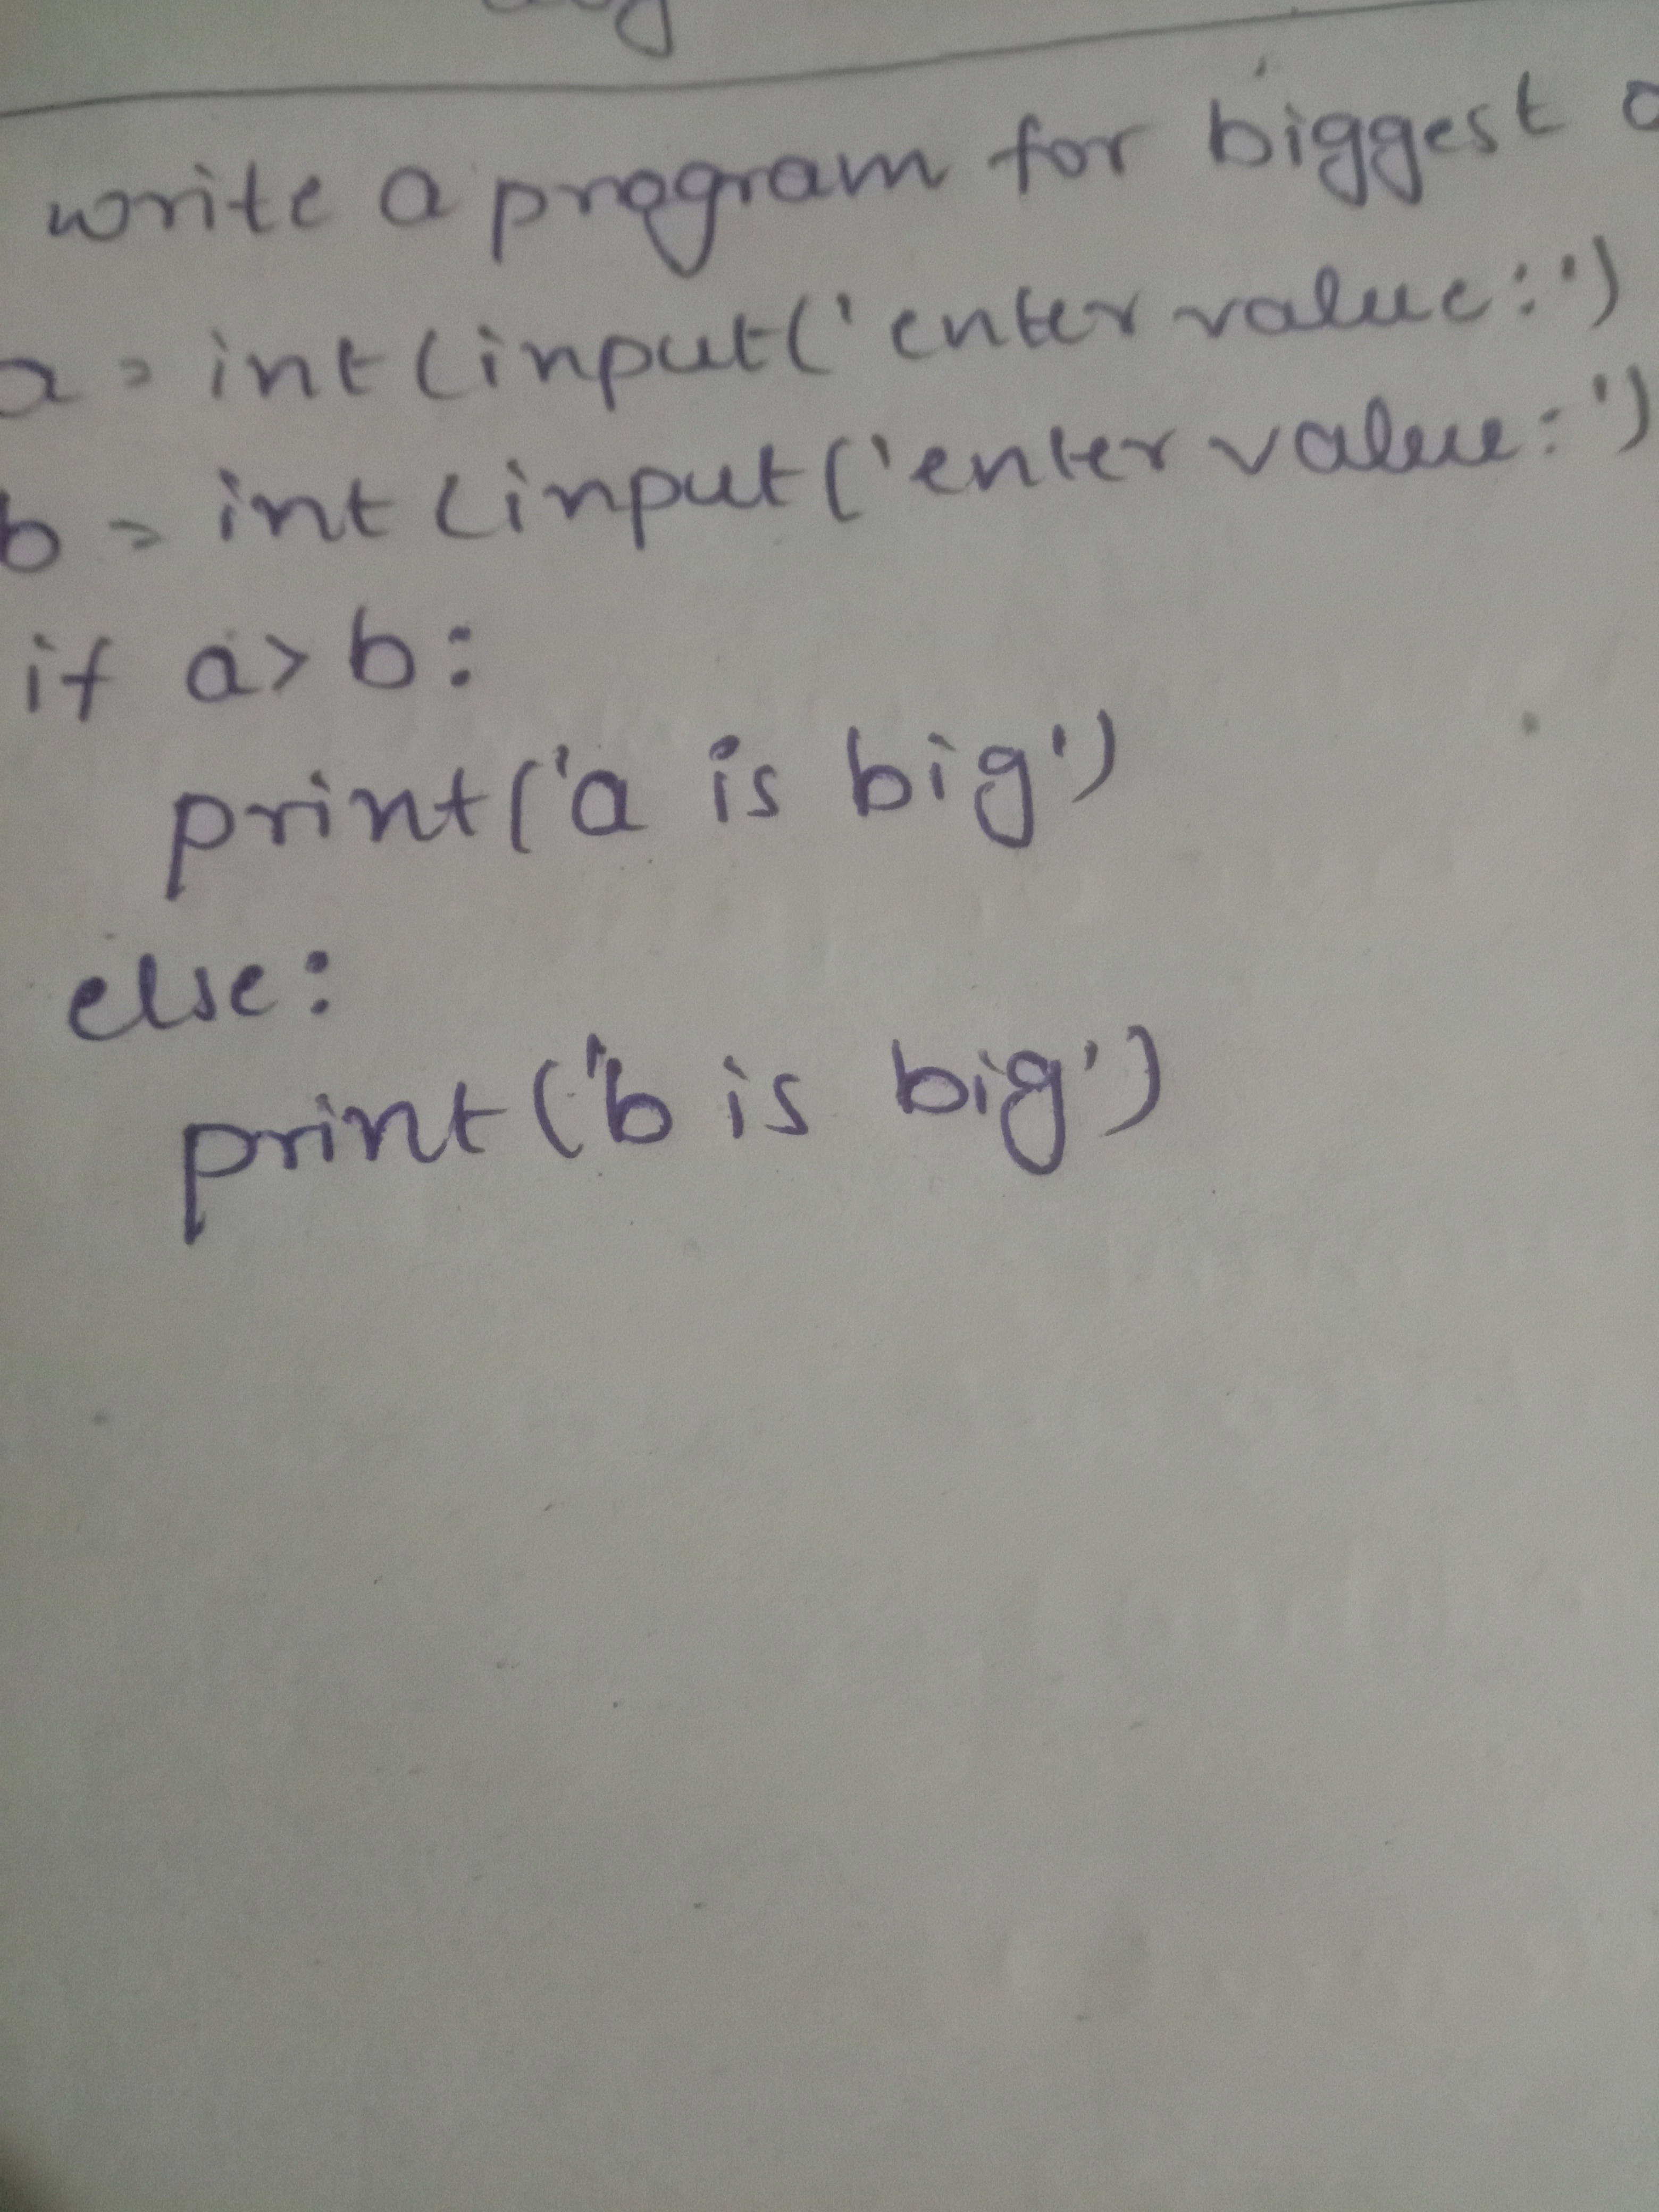 write a program for biggest
a = int(input('enter value:')
b = int(input('enter value:')
if a>b:
print('a is big')
else:
print('b is big')